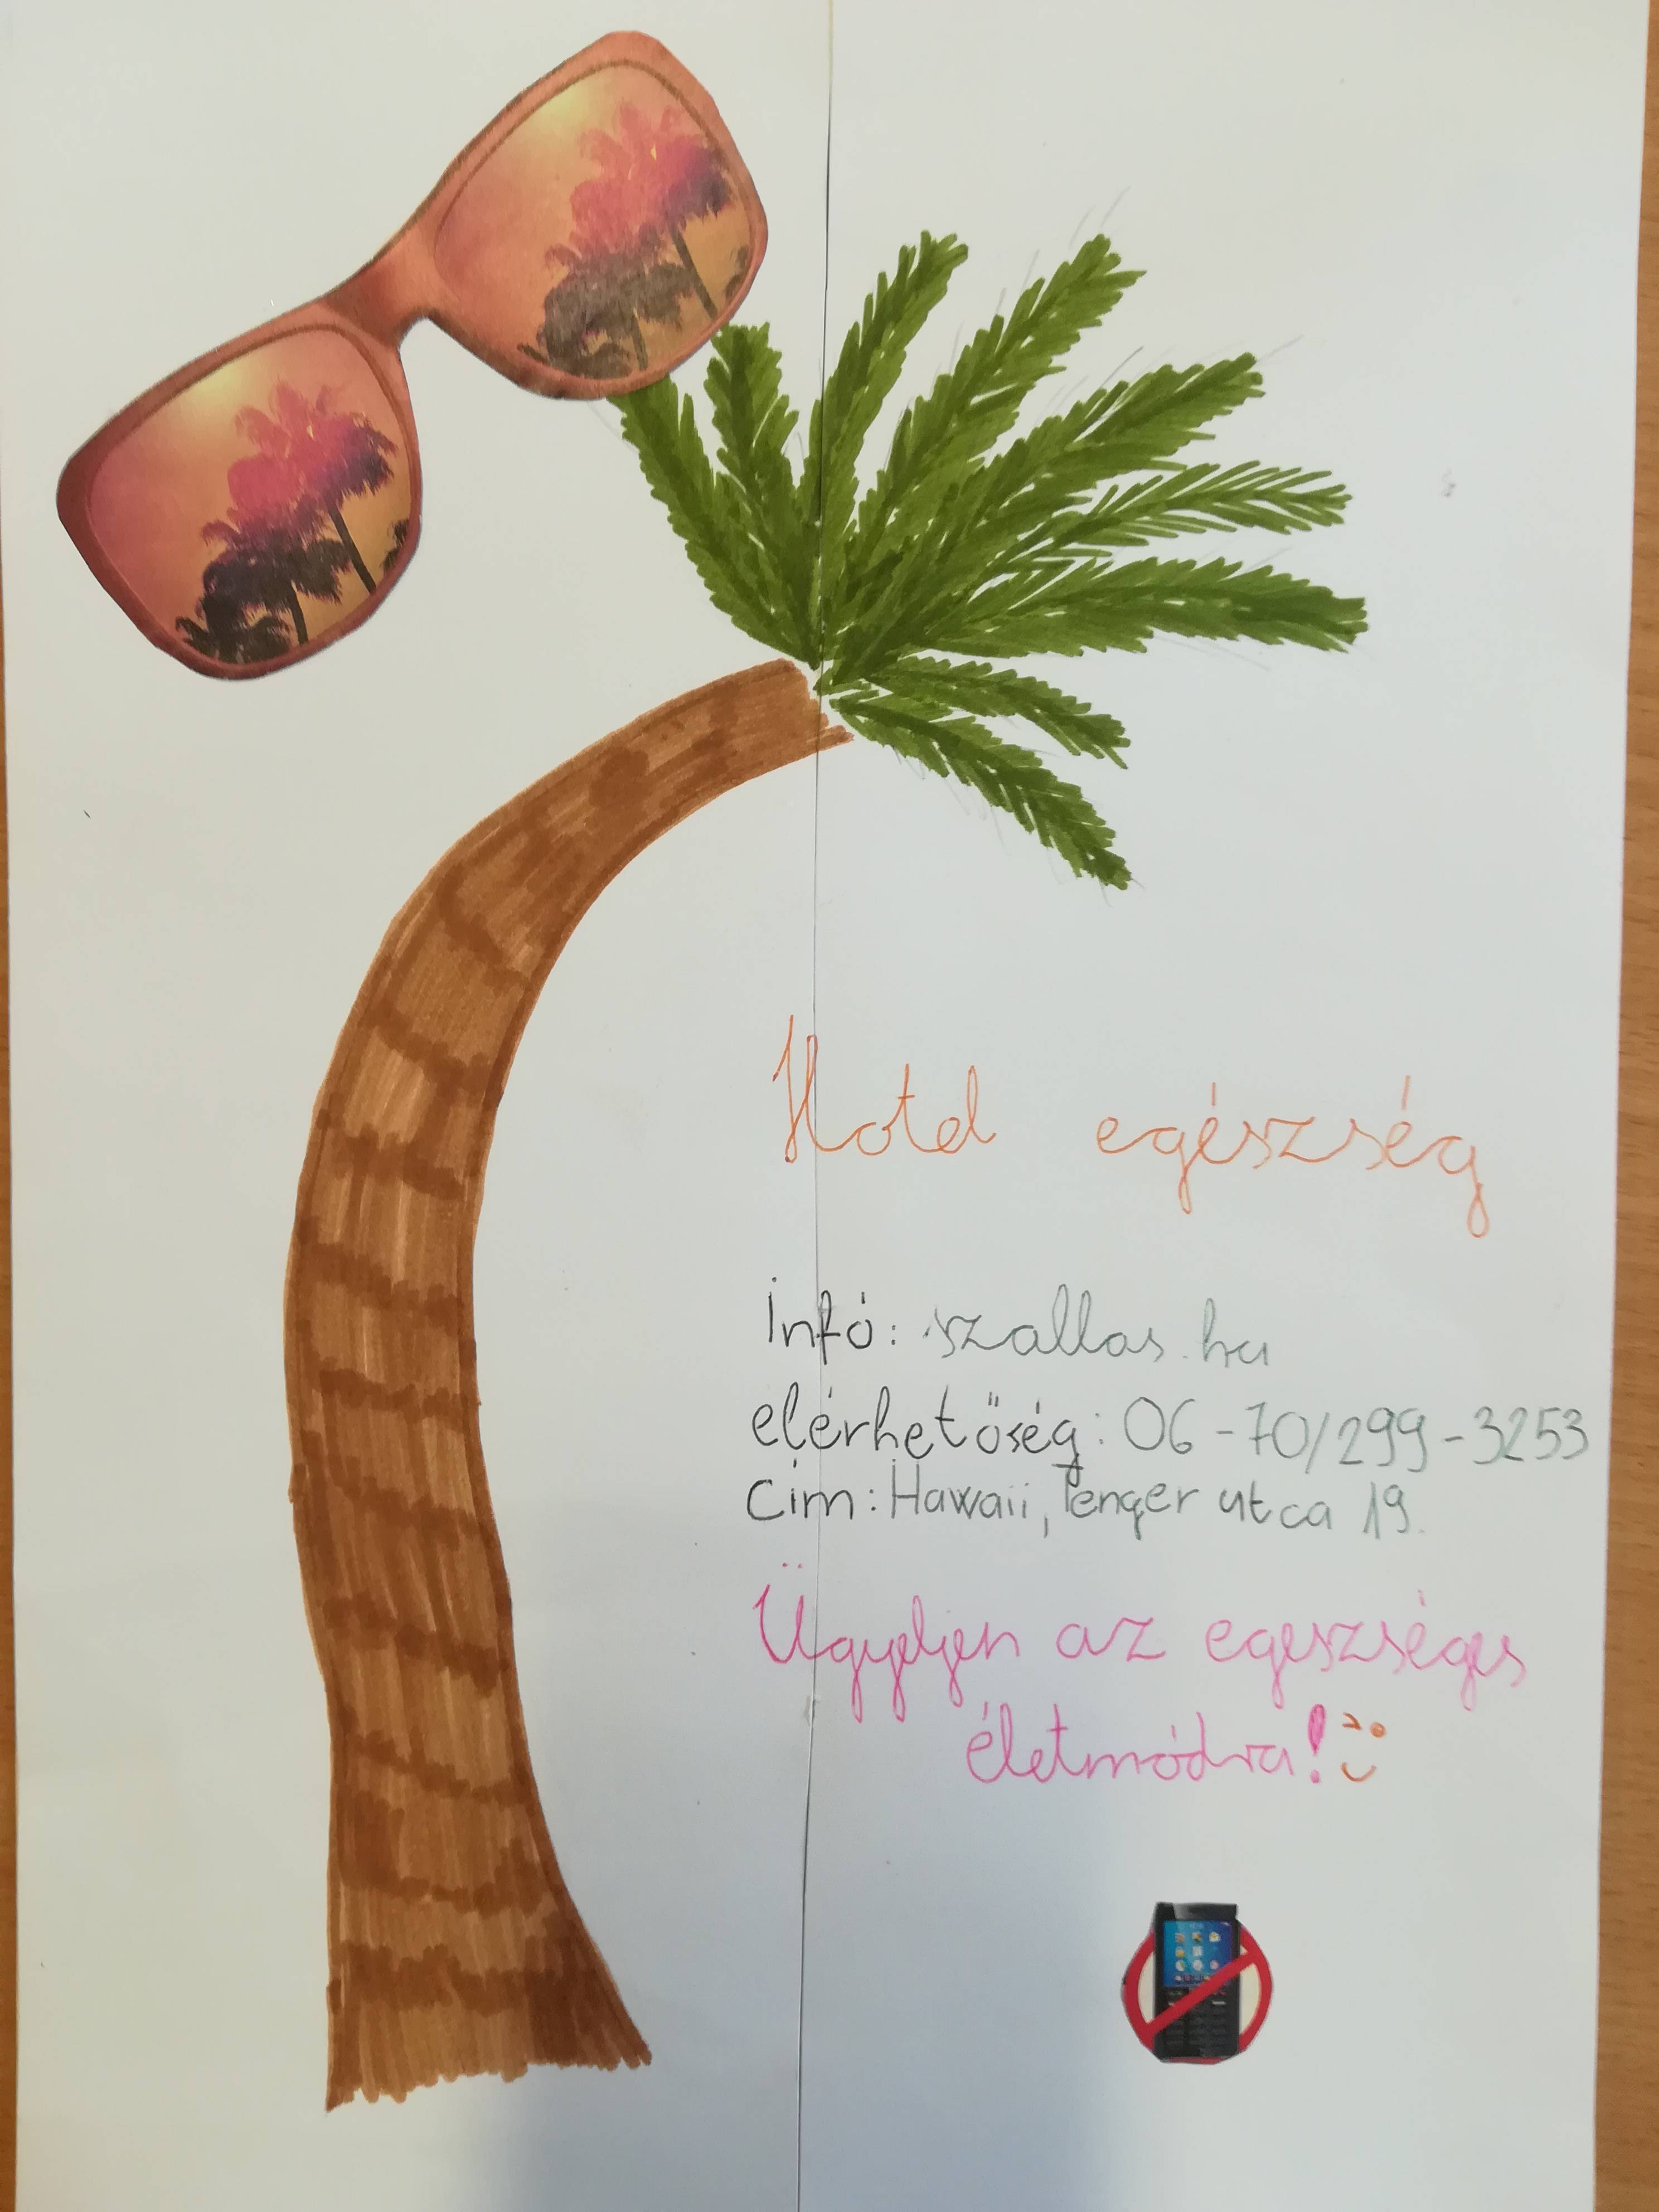 Hotel egészség
Infó: szallas.hu
elérhetőség: 06-70/299-3253
Cím: Hawaii, Tenger utca 19.
Ügyeljen az egeszséges
életmódra!